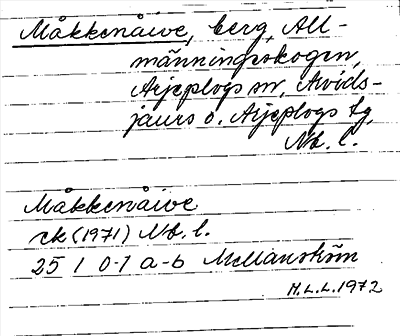 Måkkenåive, berg, All-
männingsskogen,
Arjeplogs sn, Arvids-
jaurs o. Arjeplogs tg,
Nb. l.
Måkkenåive
rk (1971) Nb. l.
25 I 0-1 a-b Mellanström
H.L.L. 1972